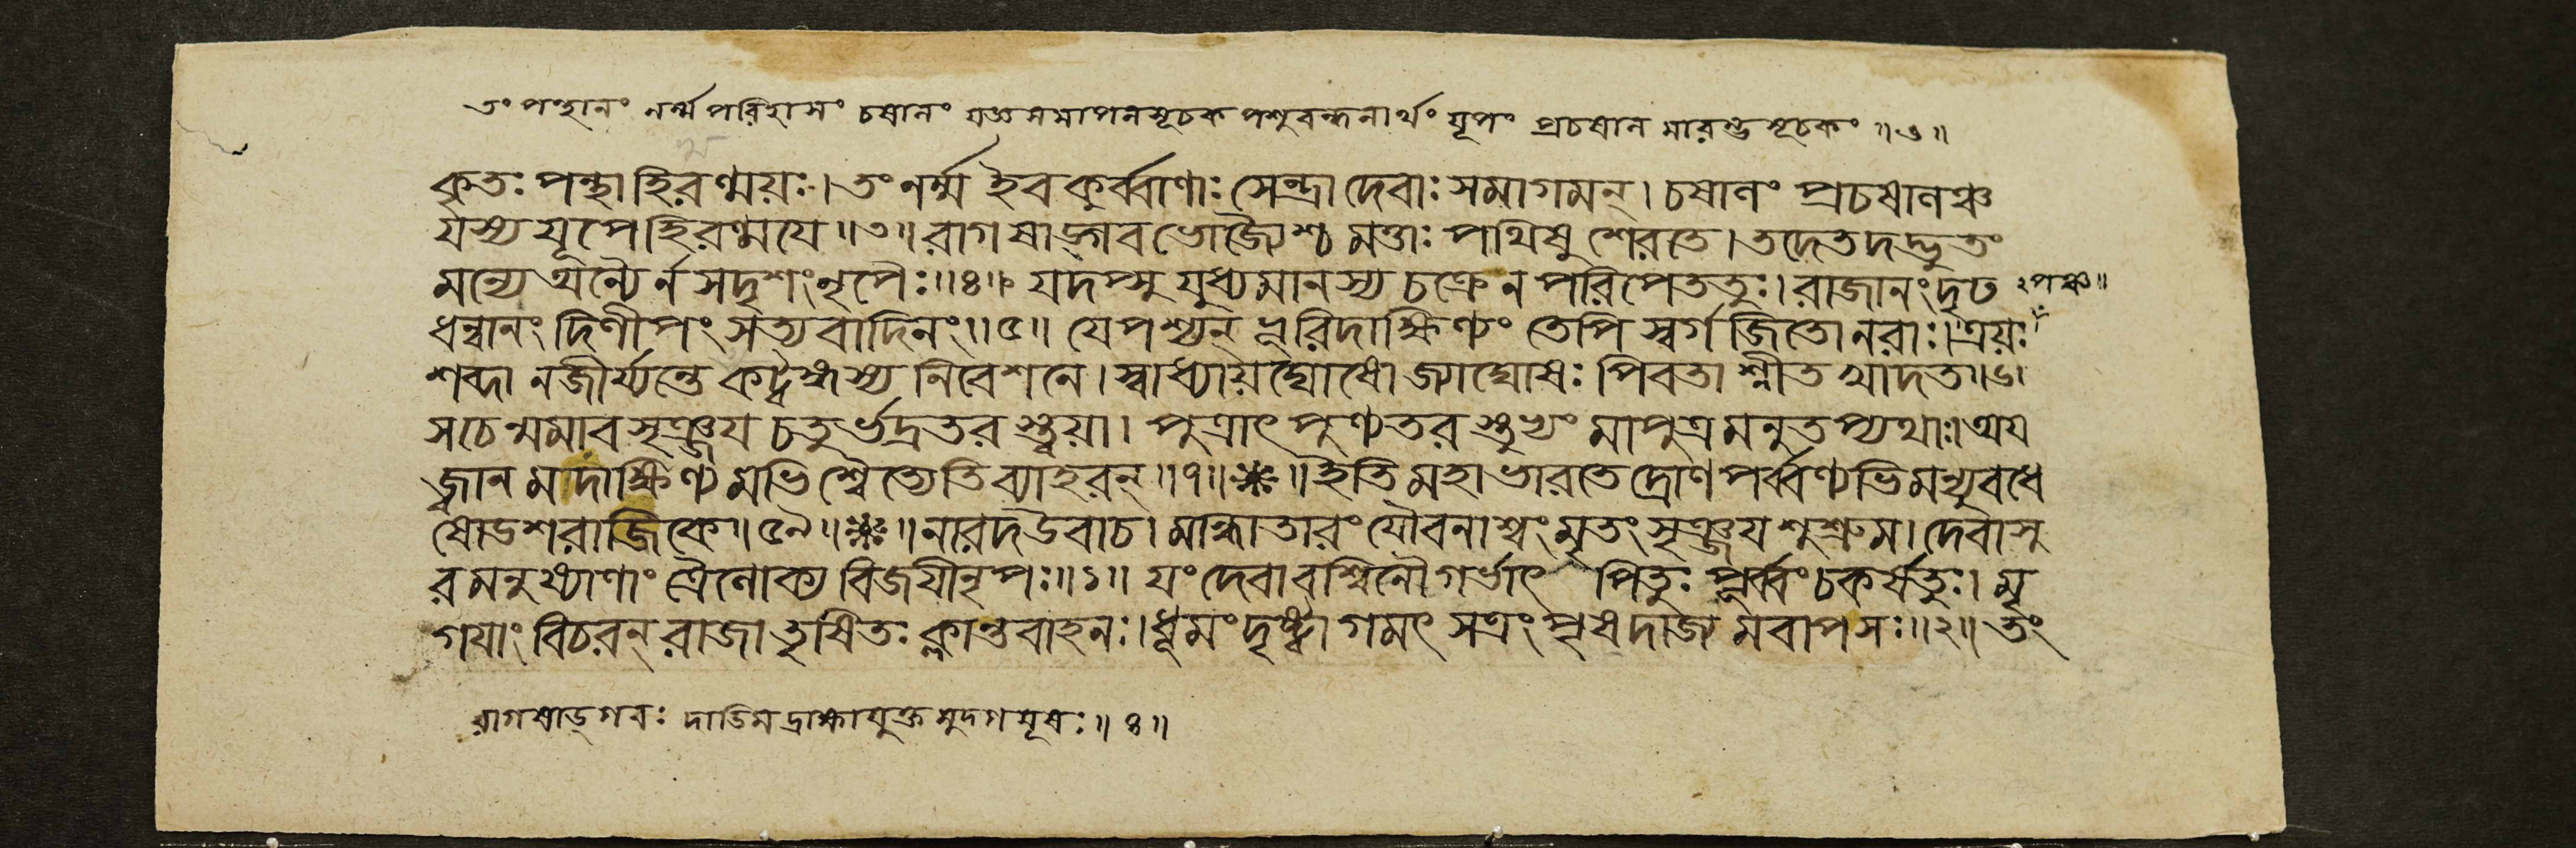 তং পন্থানং নর্ম্ম পরিহাসং চষালং যজ্ঞসমাপনসূচক পশুবন্ধনার্থং যূপং প্রচষাল মারম্ভসূচকং ॥৩॥
কৃতঃ পন্থা হিরণ্ময়ঃ। তং নর্ম্ম ইব কুর্ব্বাণাঃ সেন্দ্রা দেবাঃ সমাগমন্। চষালং প্রচষালঞ্চ
যস্য যূপে হিরণ্ময়ে॥৩॥ রাগষাড়্গবভোজ্যৈশ্চ মত্তাঃ পথিষু শেরতে। তদেতদদ্ভুতং
মন্যে অন্যৈর্ন সদৃশং নৃপৈঃ॥৪॥ যদপ্সু যুধ্যমানস্য চক্রে ন পরিপেততুঃ। রাজানং দৃঢ
২পঞ্চ॥
ধন্বানং দিলীপং সত্যবাদিনং॥৫॥ যেপশ্যন্ ভূরিদাক্ষিণ্যং তেপি স্বর্গজিতো নরাঃ। ত্রয়ঃ
শব্দা ন জীর্য্যন্তে খট্বাঙ্গস্য নিবেশনে। স্বাধ্যায়ঘোষো জ্যাঘোষঃ পিবতাশ্নীত খাদত॥৬॥
স চেন্মমার সৃঞ্জয় চতুর্ভদ্রতরস্ত্বয়া। পুত্রাৎ পুণ্যতরস্তুভ্যং মা পুত্রমনুতপ্যথাঃ। অয
জ্বানমদাক্ষিণ্যমভি শ্বৈত্যেতি ব্যাহরন্॥৭॥ ॥ইতি মহাভারতে দ্রোণপর্ব্বণ্যভিমন্যুবধে
ষোডশরাজিকে॥৫৯॥ ॥নারদ উবাচ। মান্ধাতারং যৌবনাশ্বং মৃতং সৃঞ্জয় শুশ্রুম। দেবাসু
রমনুষ্যাণাং ত্রৈলোক্যবিজয়ী নৃপঃ॥১॥ যং দেবাবশ্বিনৌ গর্ভাৎ পিতুঃ পূর্ব্বং চকর্ষতুঃ। মৃ
গয়াং বিচরন্ রাজা তৃষিতঃ ক্লান্তবাহনঃ। ধূমং দৃষ্ট্বাগমৎ সত্রং পৃষদাজ্যমবাপ সঃ॥২॥ তং
রাগষাড়্গবঃ দাডিমদ্রাক্ষাযুক্তমুদ্গযূষঃ॥৪॥